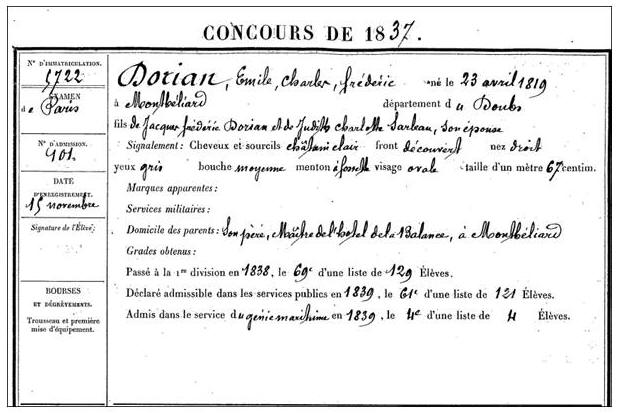 CONCOURS DE 1837.
N° D'IMMATRICULATION.
1722
EXAMEN
de Paris
N° D'ADMISSION.
101.
DATE
D'ENREGISTREMENT.
15 novembre
Signature de l'Élève:
BOURSES
ET DÉGRÈVEMENTS.
Trousseau et première
mise d'équipement.
Dorian, Emile, Charles, frédéric né le 23 avril 1819
à Montbéliard département du Doubs
fils de Jacques frédéric Dorian et de Judith charlotte Sarleau, son épouse
Signalement: Cheveux et sourcils châtain clair front découvert nez droit
yeux gris bouche moyenne menton à fossette visage ovale taille d'un mètre 67 centim.
Marques apparentes:
Services militaires:
Domicile des parents: Son père, Maître de l'hotel de la Balance, à Montbéliard
Grades obtenus:
Passé à la 1re division en 1838, le 69e d'une liste de 129 Élèves.
Déclaré admissible dans les services publics en 1839, le 61e d'une liste de 121 Élèves.
Admis dans le service du génie maritime en 1839, le 4e d'une liste de 4 Élèves.